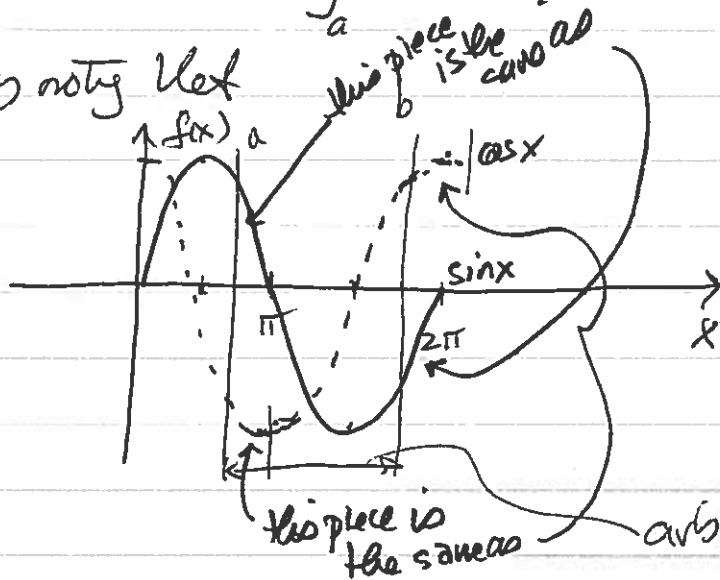 a
noting that
this piece
is the
same as
f(x)
a
b
cos x
sin x
π
2π
x
this piece is
the same as